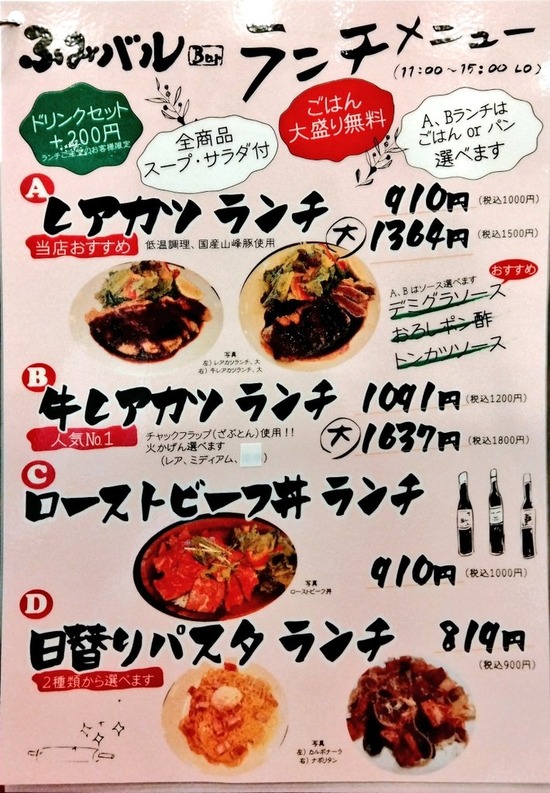 バル Bar ランチメニュー
(11:00~15:00 LO)
ドリンクセット
+200円
全商品
スープ・サラダ付
ごはん
大盛り無料
A、Bランチは
ごはん or パン
選べます
A
レアカツ ランチ 910円 (税込1000円)
当店おすすめ 低温調理、国産山峰豚使用
大 1364円 (税込1500円)
おすすめ
A、Bはソース選べます
デミグラソース
おろしポン酢
トンカツソース
写真
左)レアカツランチ、大
右)牛レアカツランチ、大
B
牛レアカツ ランチ 1091円 (税込1200円)
人気No.1 チャックフラップ(ざぶとん)使用!!
火かげん選べます
(レア、ミディアム、 )
大 1637円 (税込1800円)
C
ローストビーフ丼 ランチ
910円 (税込1000円)
写真
ローストビーフ丼
D
日替りパスタ ランチ 819円
(税込900円)
2種類から選べます
写真
左)カルボナーラ
右)ナポリタン